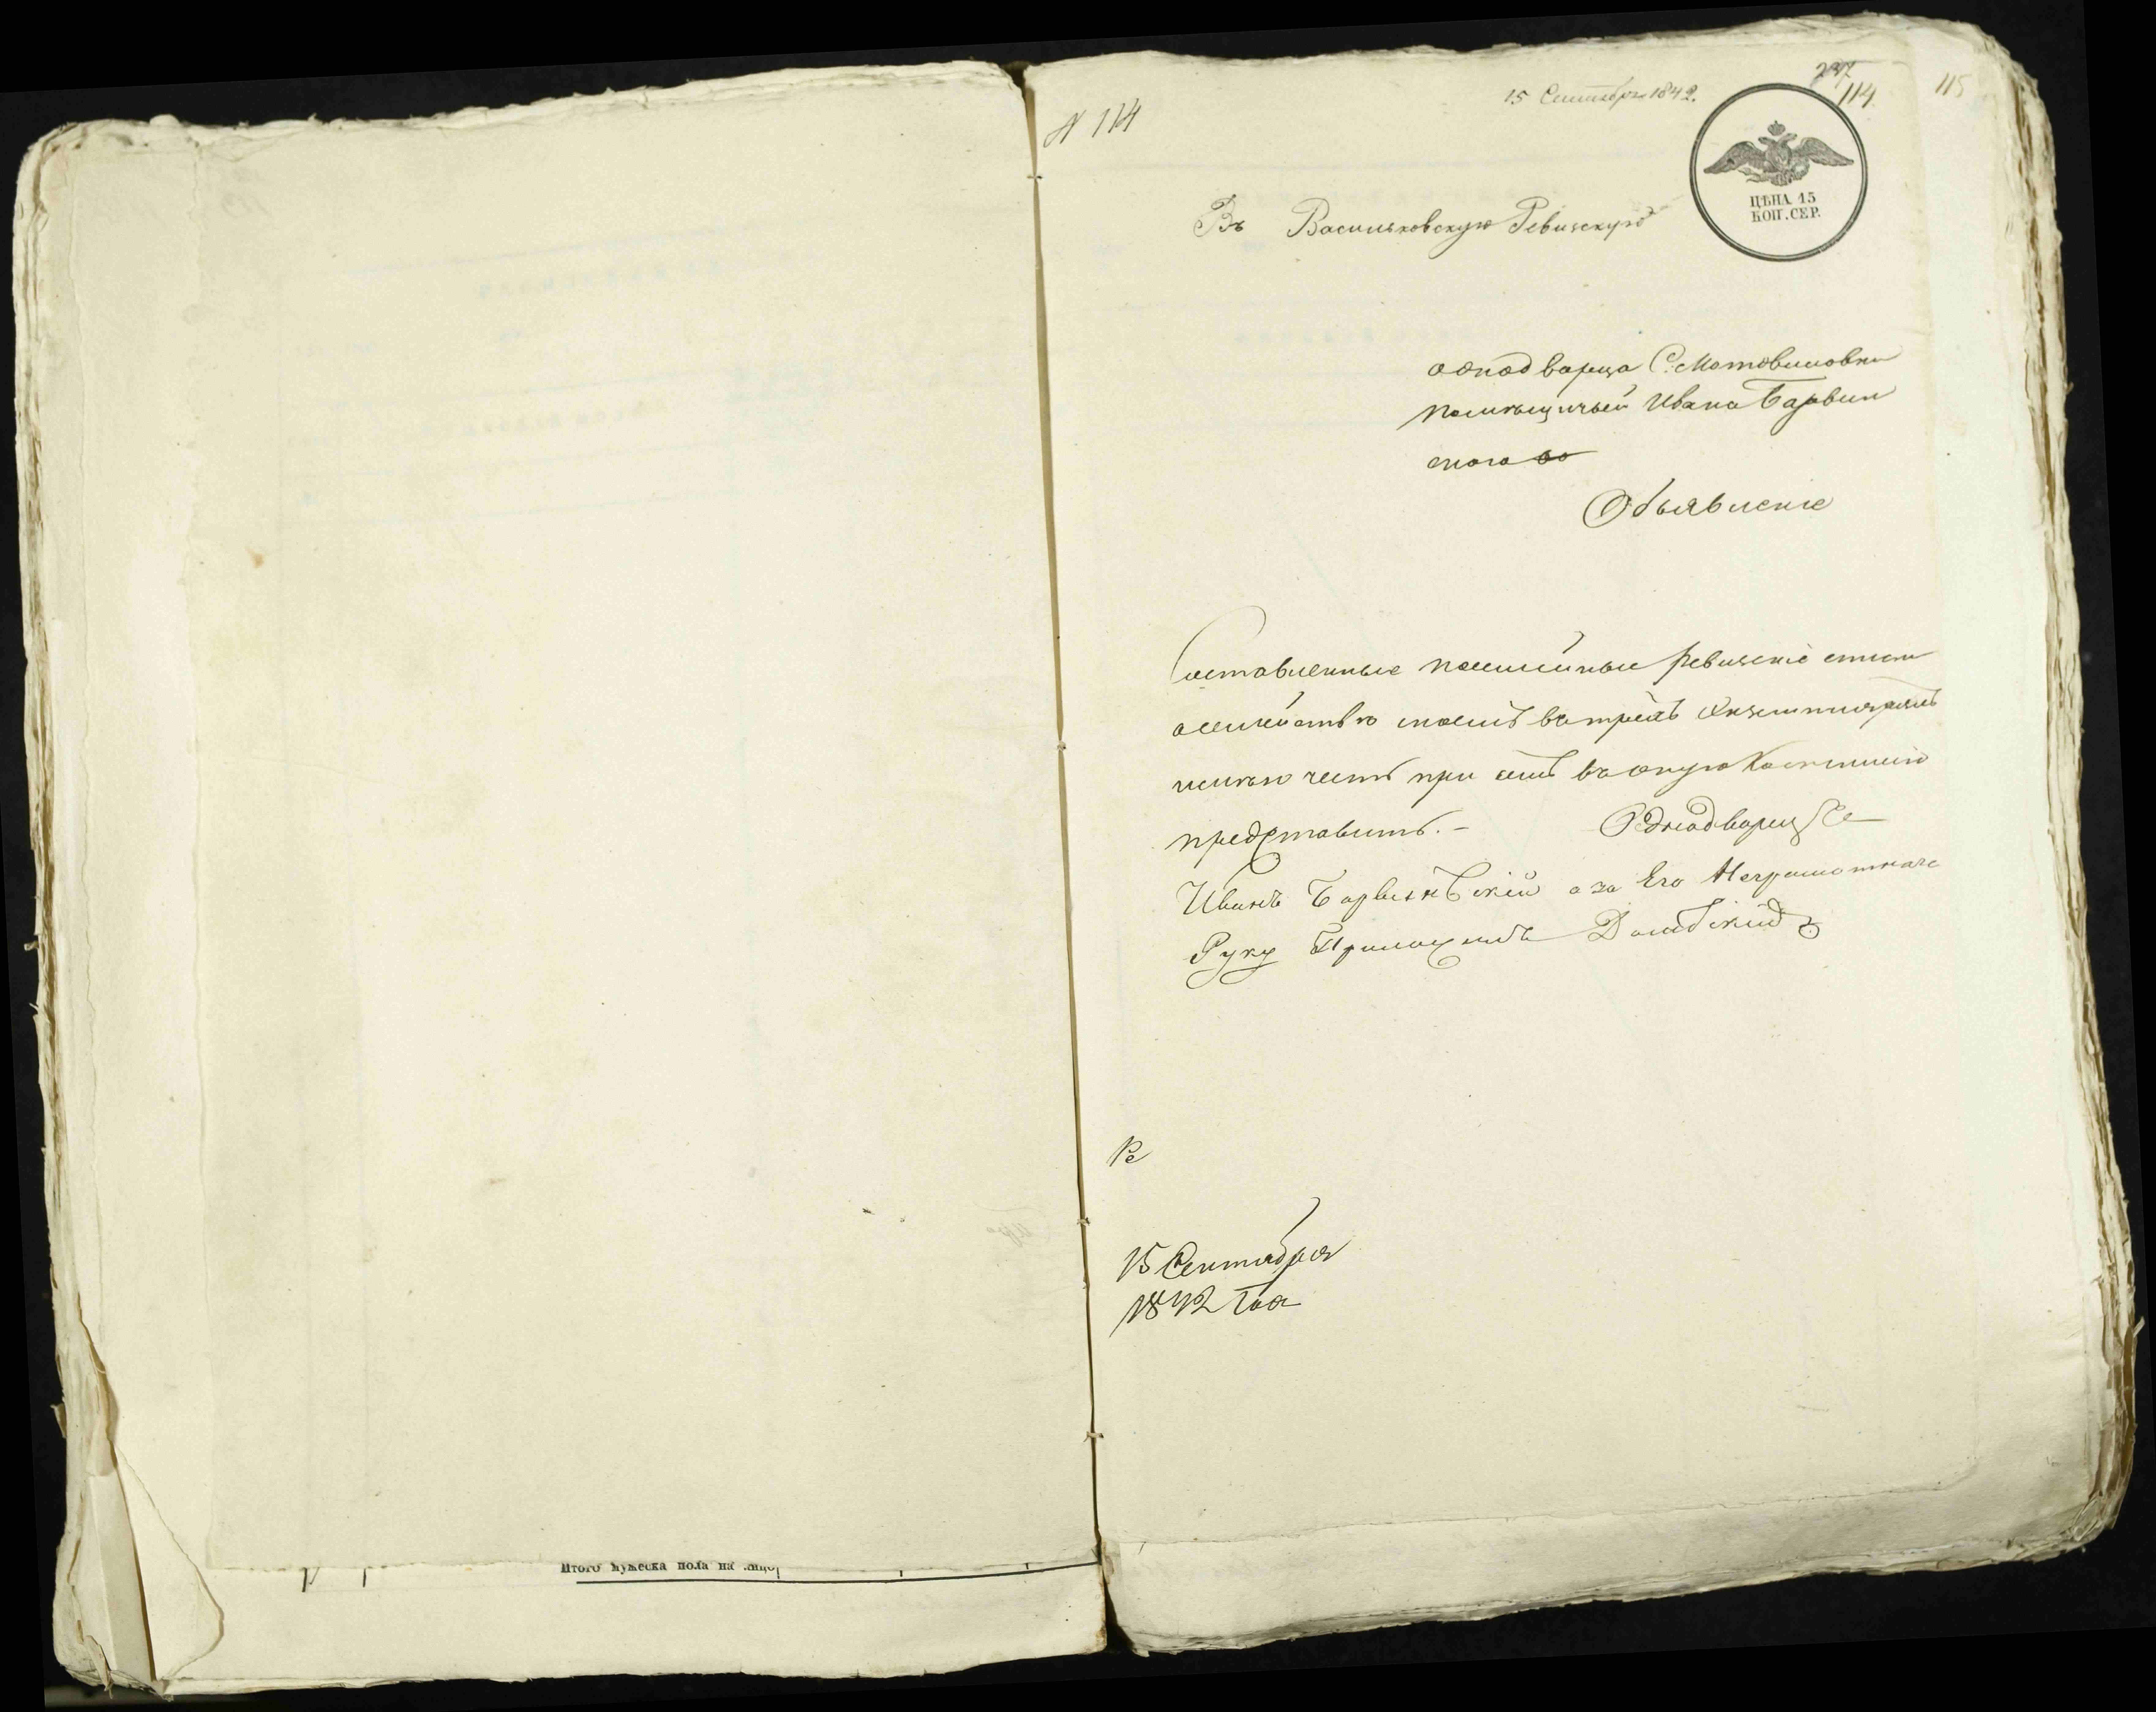 Итого мужеска пола на лицо
N 114
15 Сентября 1842.
237
114
115
ЦѢНА 15
КОП. СЕР.
Въ Васильковскую Ревизскую
однодворца С. Мотовиловки
помѣщичьей Ивана Барвин
ского
Объявленіе
Составленные посемейные ревизскіе списки
осемействѣ моемъ вътрехъ экземплярахъ
имѣю честь при семъ въ оную Коммисію
представить. – Однодворец
Иванъ Барвинскій а за Его Неграмотнаго
Руку Приложилъ
Ре
15 Сентября
1842 года